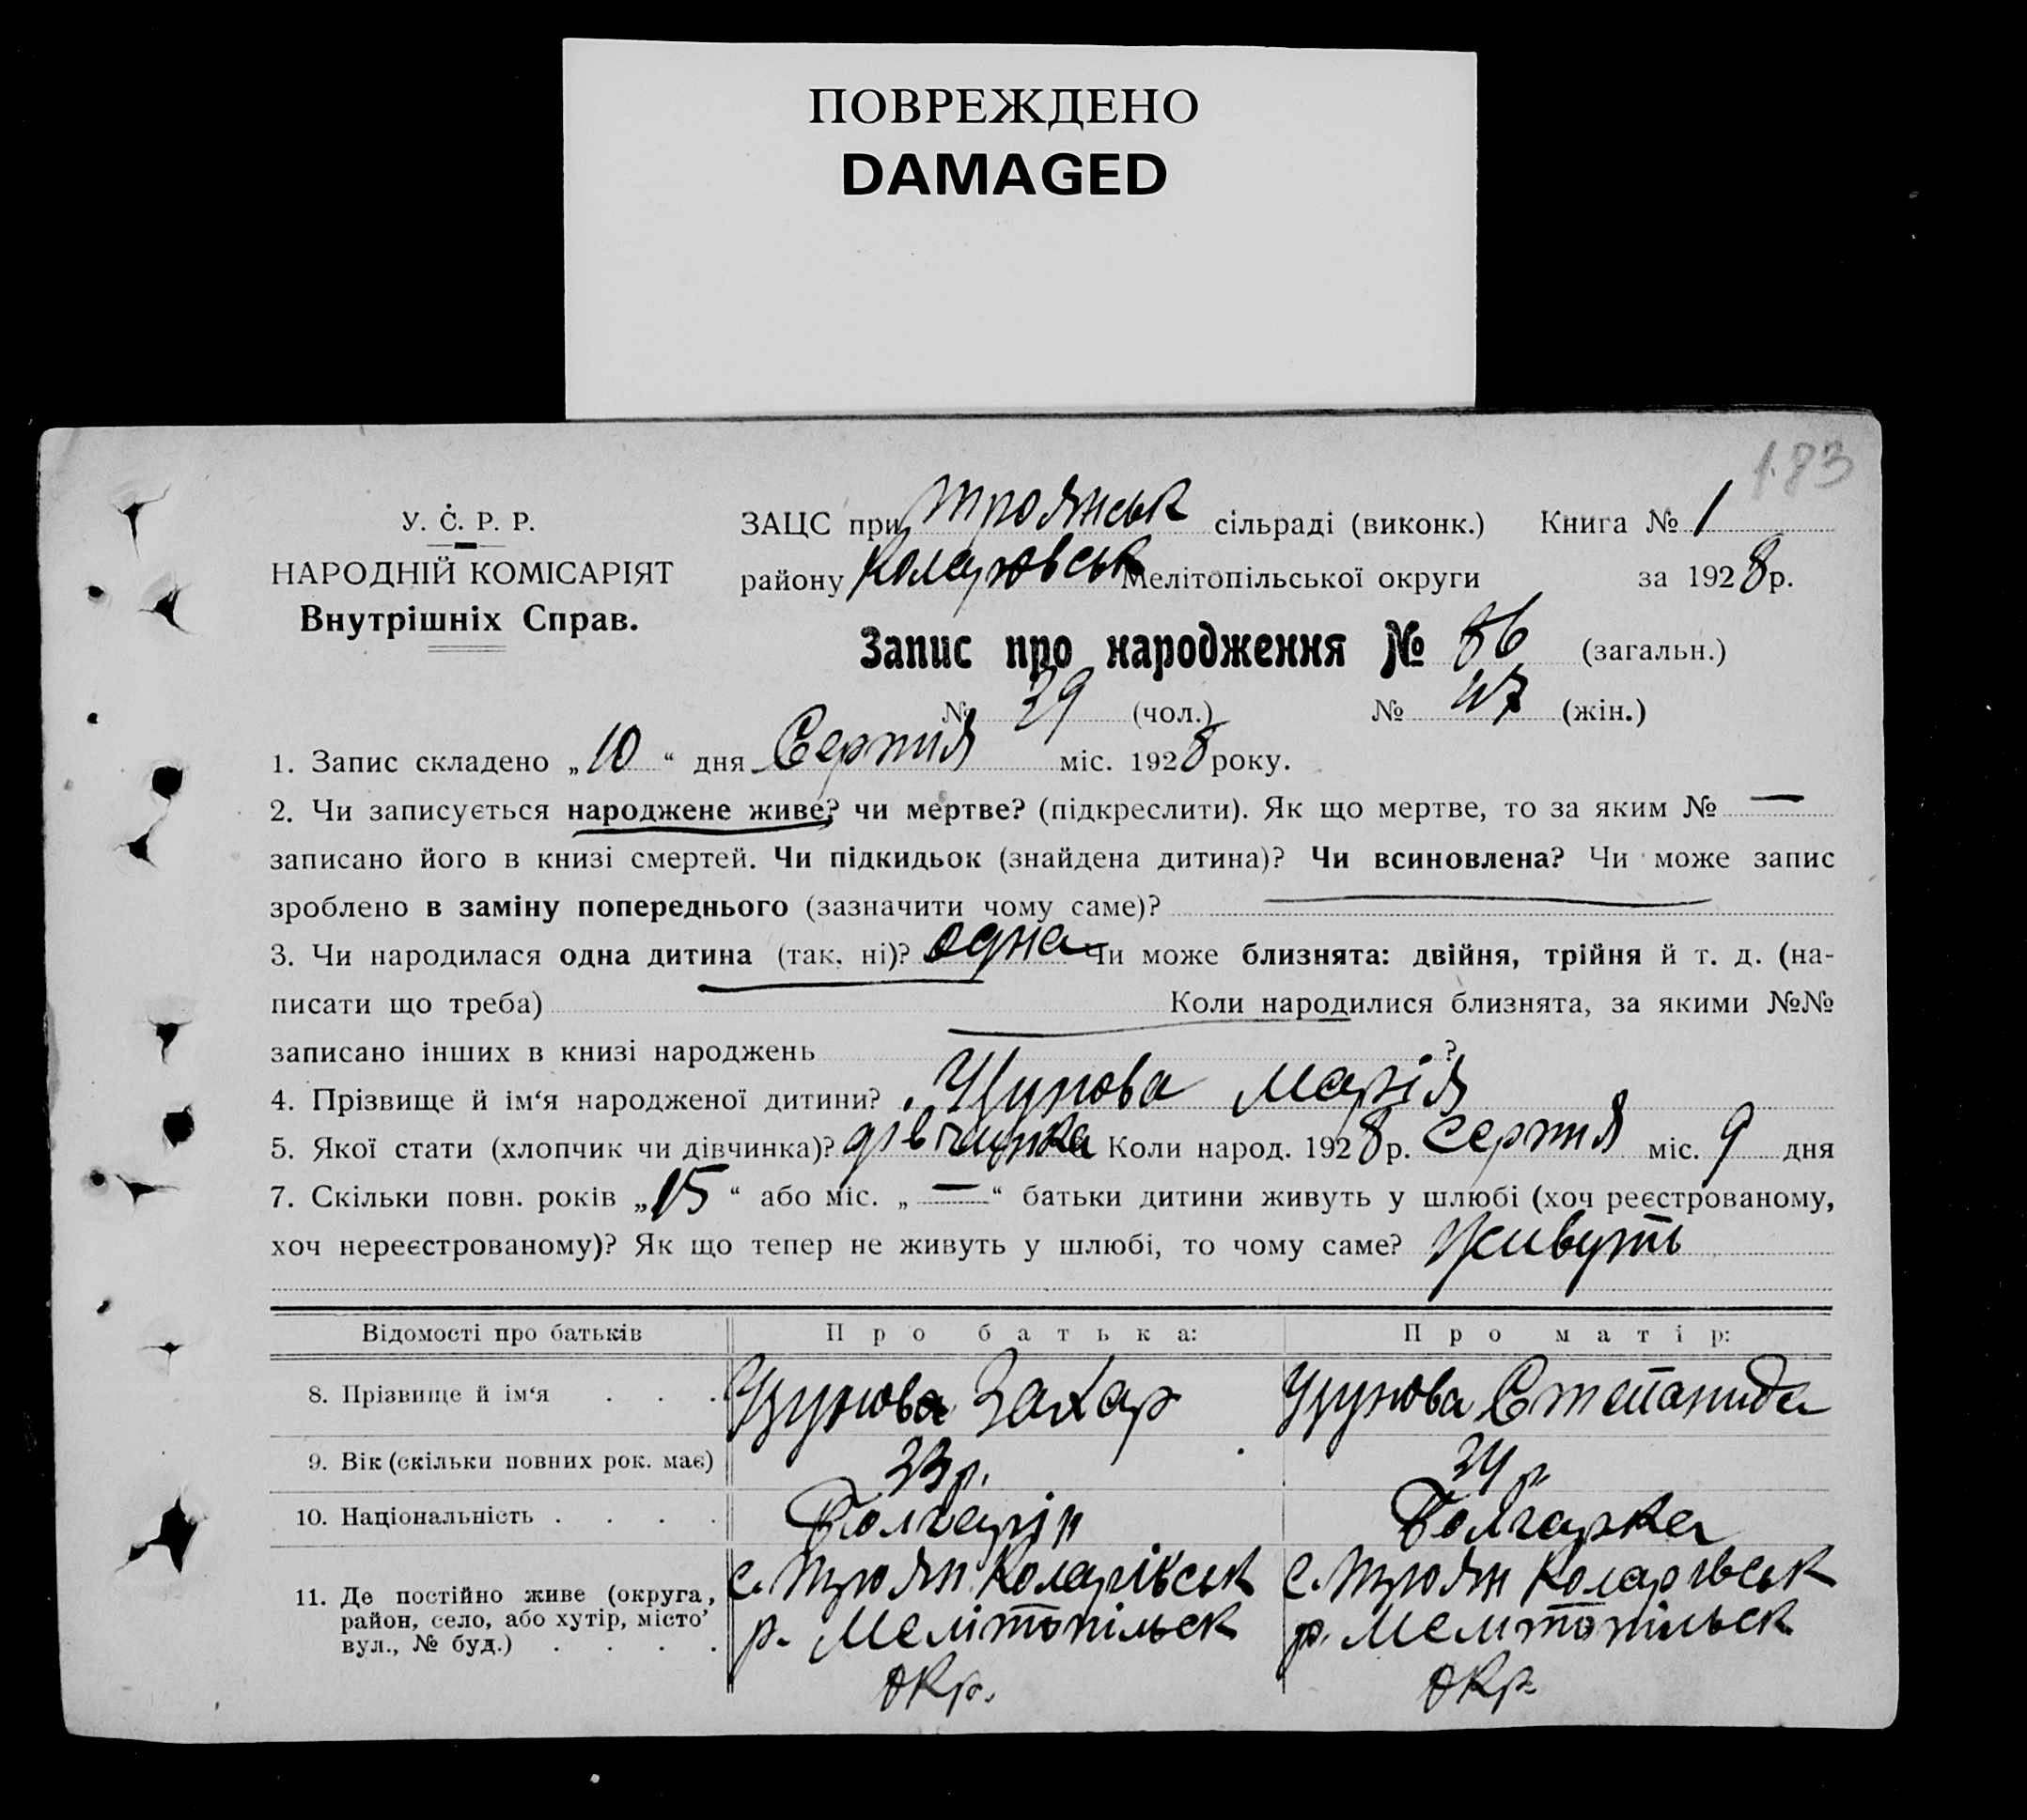 ПОВРЕЖДЕНО
DAMAGED
183
У. С. Р. Р.
НАРОДНІЙ КОМІСАРІЯТ
Внутрішніх Справ.
ЗАЦС при Троянськ сільраді (виконк.) Книга № 1
району Коларовськ Мелітопільської округи за 1928 р.
Запис про народження № 86 (загальн.)
№ 39 (чол.) № 47 (жін.)
1. Запис складено „10“ дня Серпня міс. 1928 року.
2. Чи записується народжене живе? чи мертве? (підкреслити). Як що мертве, то за яким № —
записано його в книзі смертей. Чи підкидьок (знайдена дитина)? Чи всиновлена? Чи може запис
зроблено в заміну попереднього (зазначити чому саме)?
3. Чи народилася одна дитина (так, ні)? одна Чи може близнята: двійня, трійня й т. д. (на-
писати що треба) Коли народилися близнята, за якими №№
записано інших в книзі народжень ?
4. Прізвище й ім‘я народженої дитини? Узунова Марія
5. Якої стати (хлопчик чи дівчинка)? дівчинка Коли народ. 1928 р. серпня міс. 9 дня
7. Скільки повн. років „15“ або міс. „—“ батьки дитини живуть у шлюбі (хоч реєстрованому,
хоч нереєстрованому)? Як що тепер не живуть у шлюбі, то чому саме? Живуть
Відомості про батьків Про батька: Про матір:
8. Прізвище й ім‘я . . . Узунова Захар Узунова Степанида
9. Вік (скільки повних рок. має) 33 р. 34 р.
10. Національність . . . . Болгарін Болгарка
11. Де постійно живе (округа, район, село, або хутір, місто, вул., № буд.) . . . .
с. Троян Коларівськ с. Троян Коларівськ
р. Мелітопільск р. Мелітопільск
окр. окр.